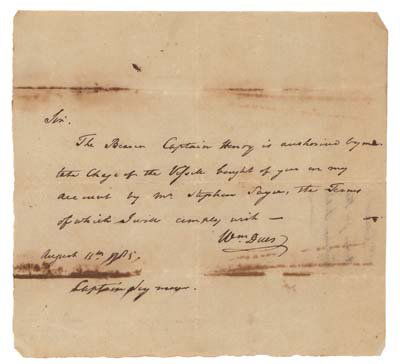 Sir.
The Bearer Captain Henry is authorised by me
take Charge of the Vessell bought of you on my
account by Mr Stephen Sayre, the Terms
of which I will comply with —
Wm Duer
August 11th 1785,
Captain Seymour.